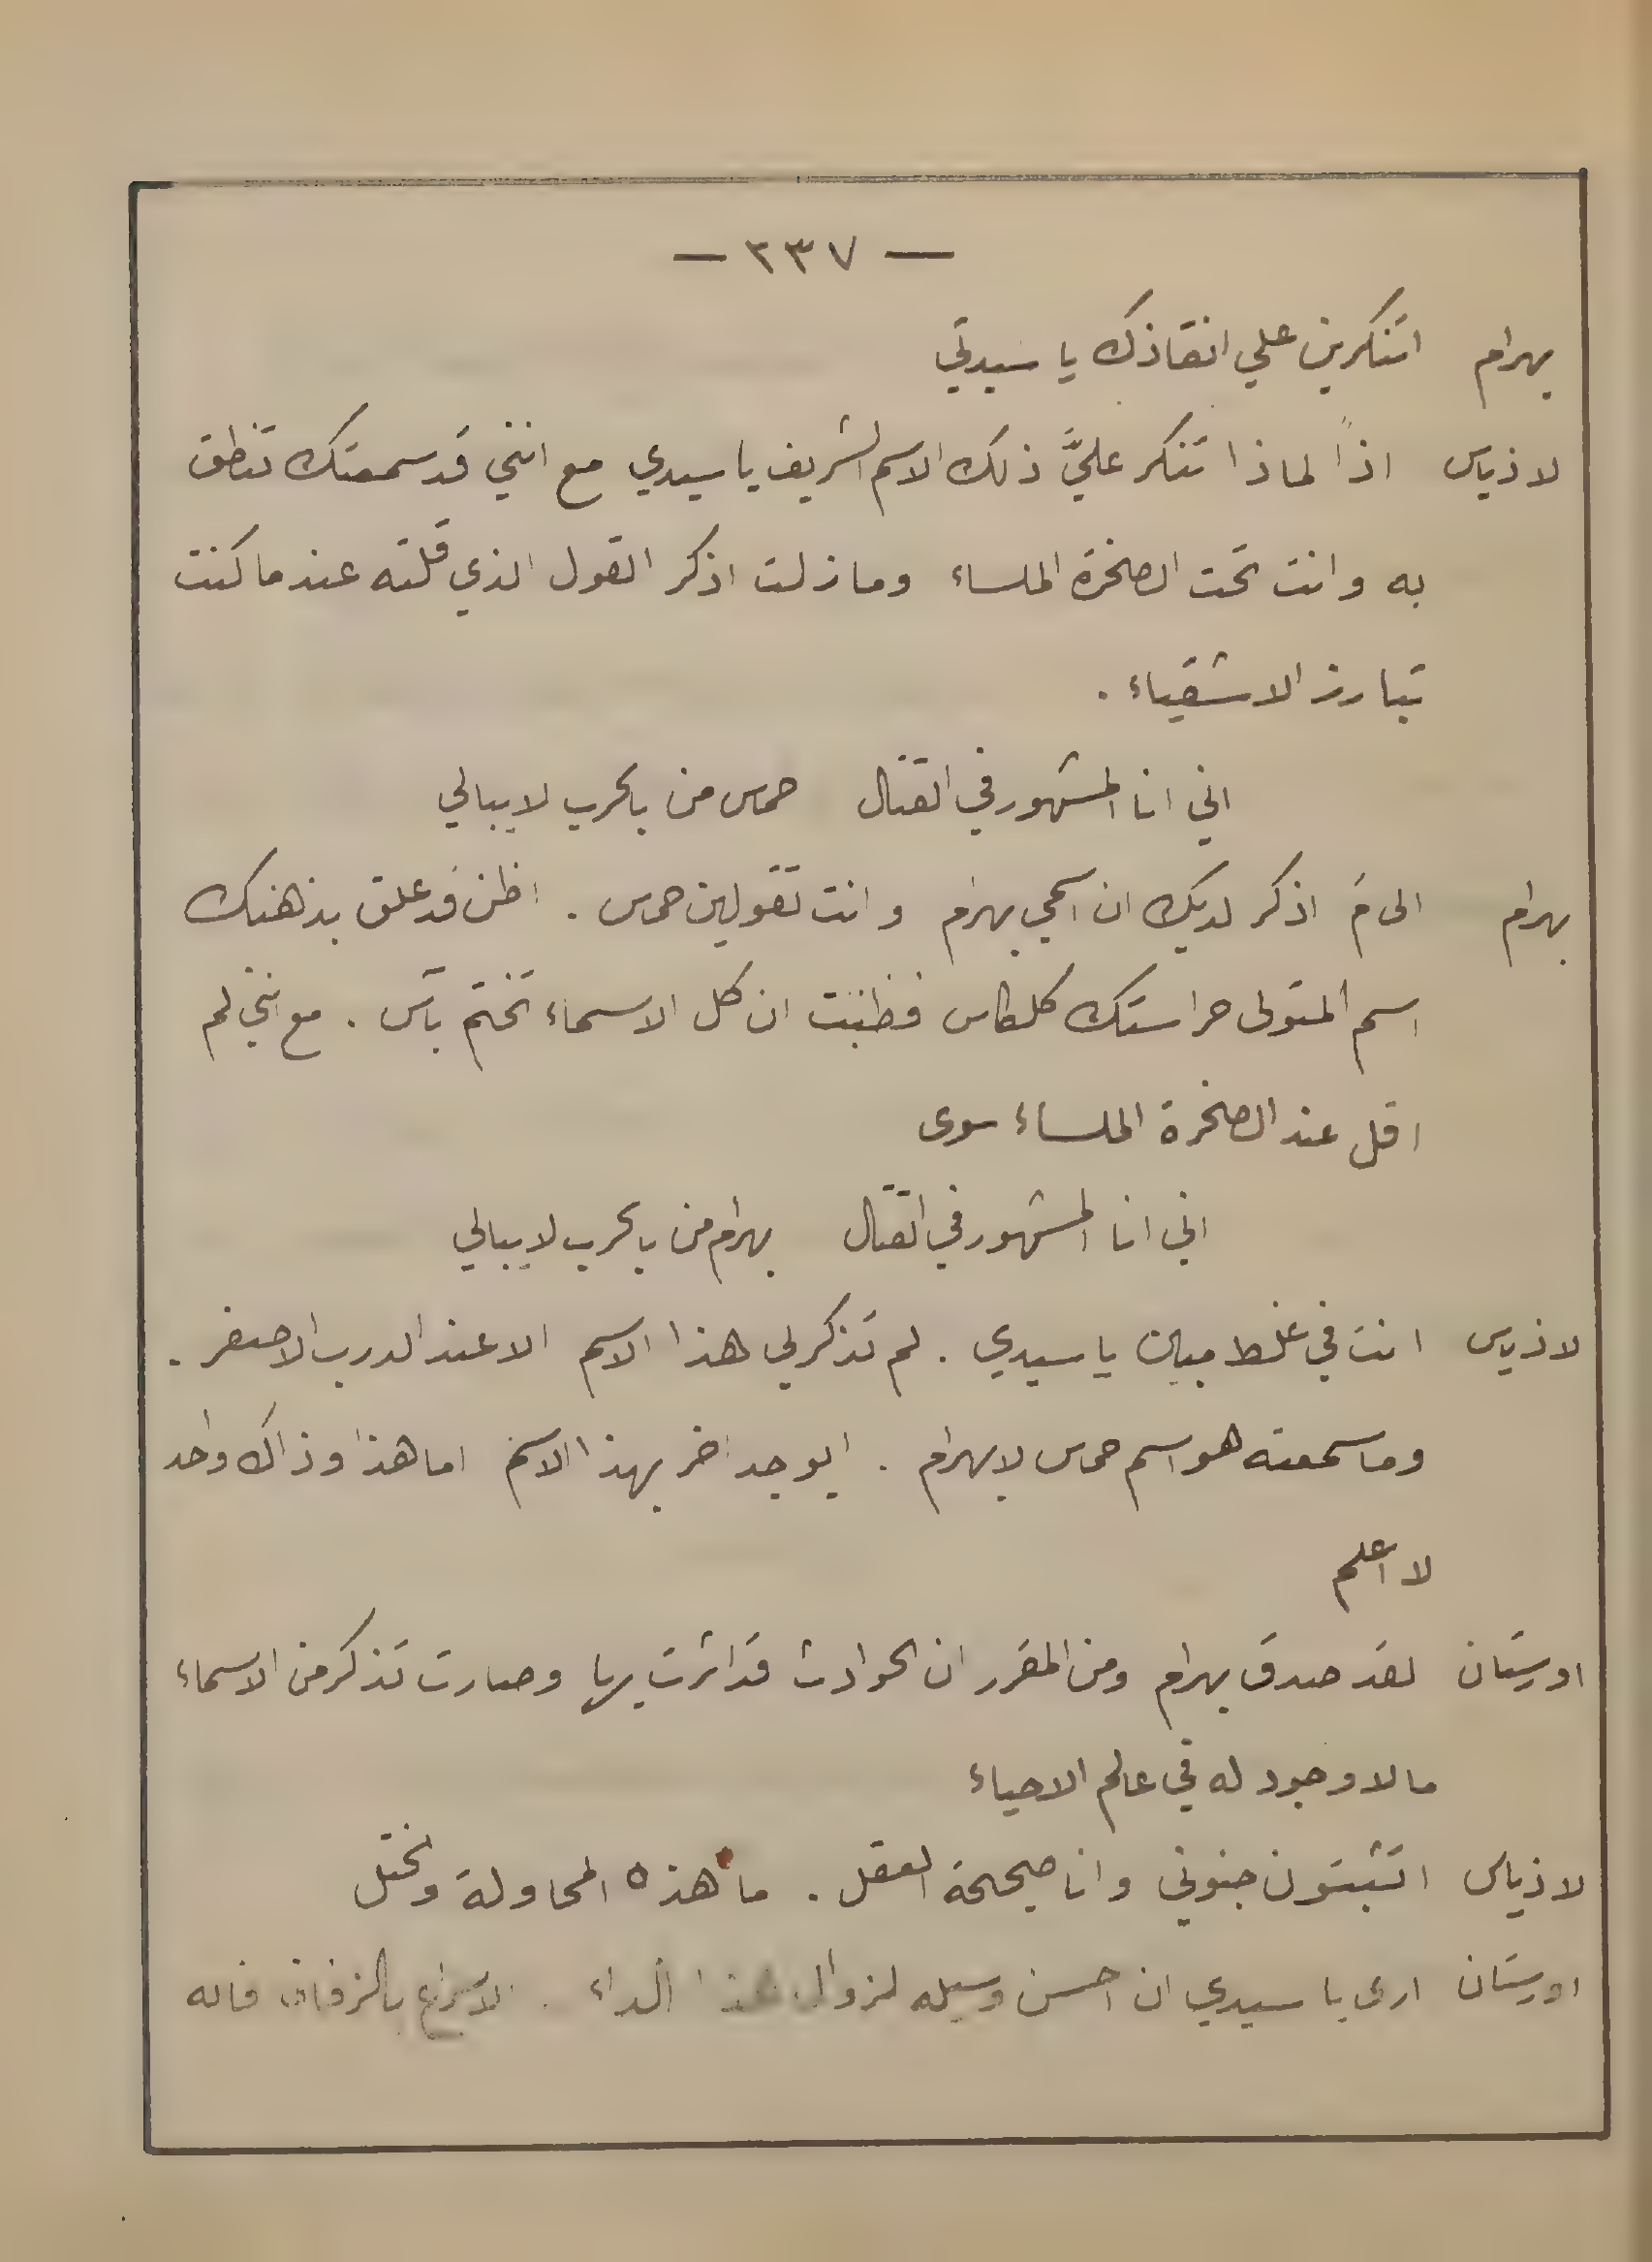 — ٢٣٧ —
بهرام اتنكرين علي انقاذك يا سيدتي
لاذياس اذاً لماذا تنكر عليَّ ذلك الاسم الشريف يا سيدي مع انني قد سمعتك تنطق
به وانت تحت الصخرة الملساء وما زلت اذكر القول الذي قلته عندما كنت
تبارز الاشقياء .
اني انا المشهور في القتال حماس من بالحرب لا يبالي
بهرام الى مَ اذكر لديك ان اسمي بهرام وانت تقولين حماس . اظن قد علق بذهنك
اسم المتولى حراستك كلكاس فظننت ان كل الاسماء تختم بآس . مع انني لم
اقل عند الصخرة الملساء سوى
اني انا المشهور في القتال بهرام من بالحرب لا يبالي
لاذياس انت في غلط مبين يا سيدي . لم تذكر لي هذا الاسم الا عند الدرب الاصفر .
وما سمعته هو اسم حماس لا بهرام . ايوجد اخر بهذا الاسم اما هذا وذاك واحد
لا اعلم
اورستان لقد صدق بهرام ومن المقرر ان الحوادث قد اثرت بها وصارت تذكر من الاسماء
ما لا وجود له في عالم الاحياء
لاذياس اتثبتون جنوني وانا صحيحة العقل . ما هذه المحاولة والختل
اورستان ارى يا سيدي ان احسن وسيله لزوال هذا الداء . الاسراع بالزفاف فانه